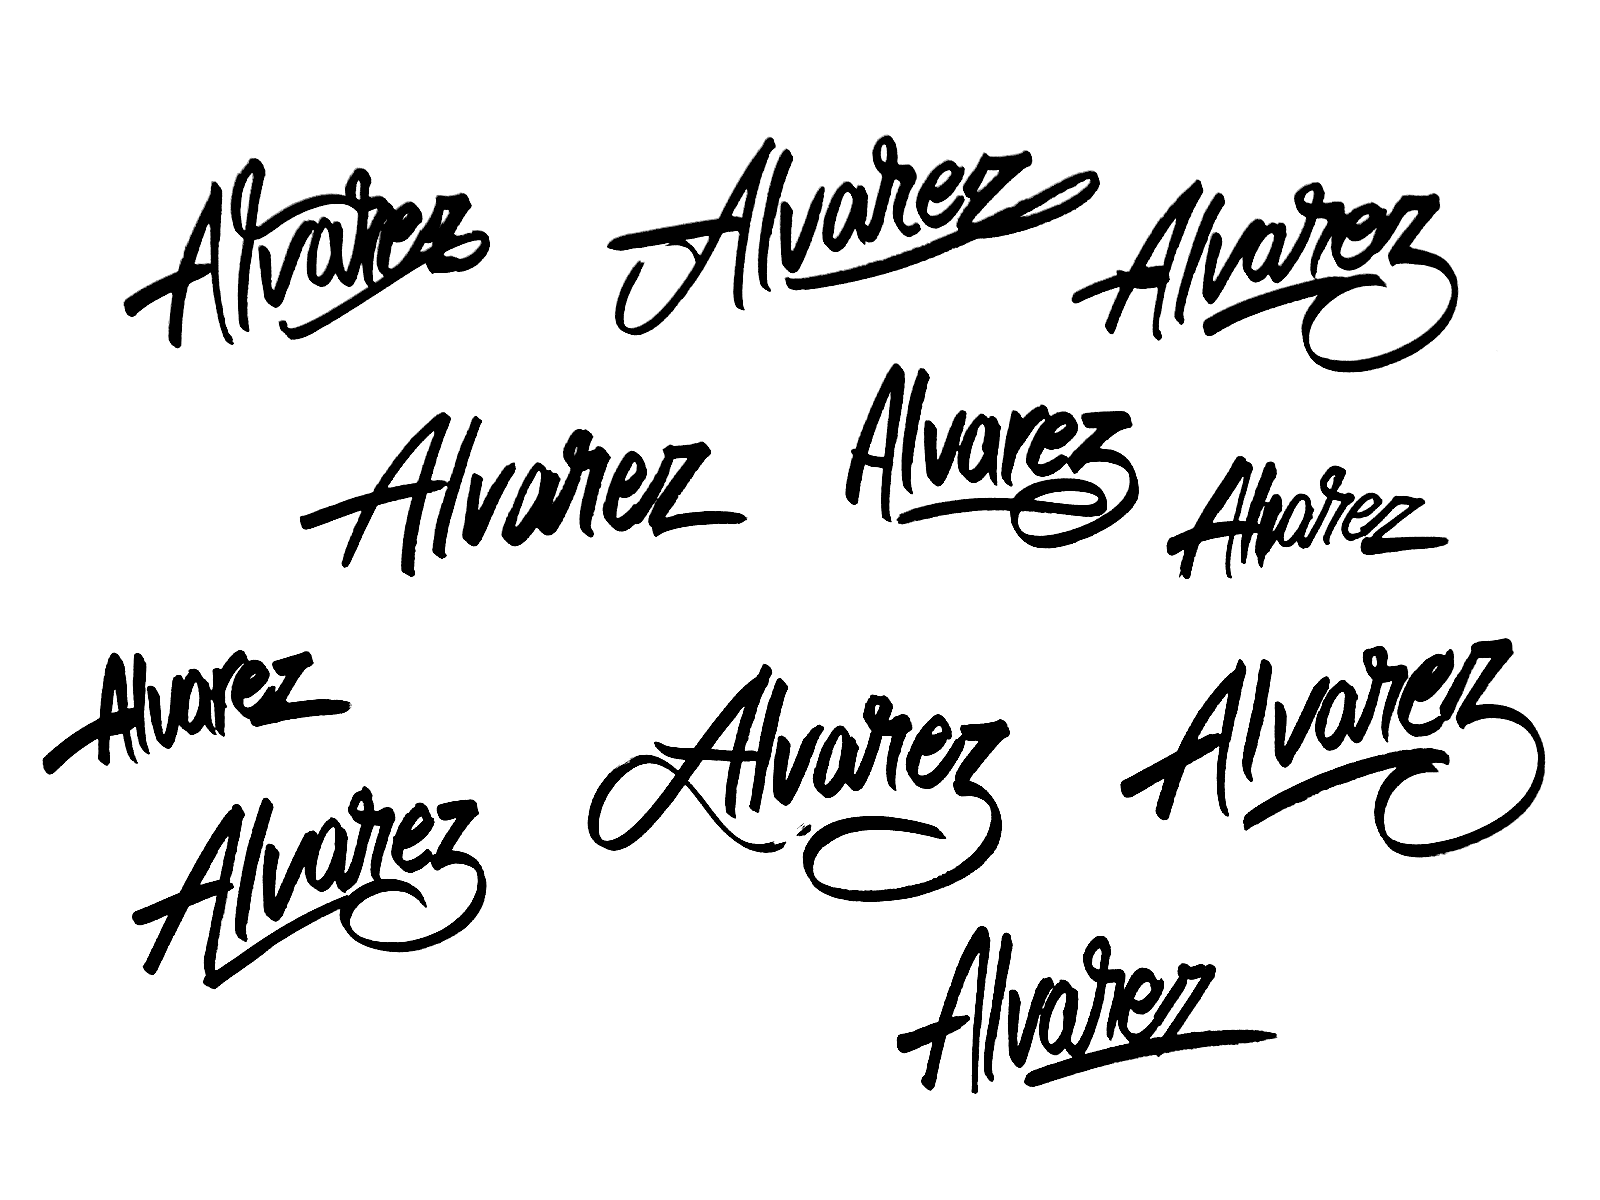 Alvarez
Alvarez
Alvarez
Alvarez
Alvarez
Alvarez
Alvarez
Alvarez
Alvarez
Alvarez
Alvarez